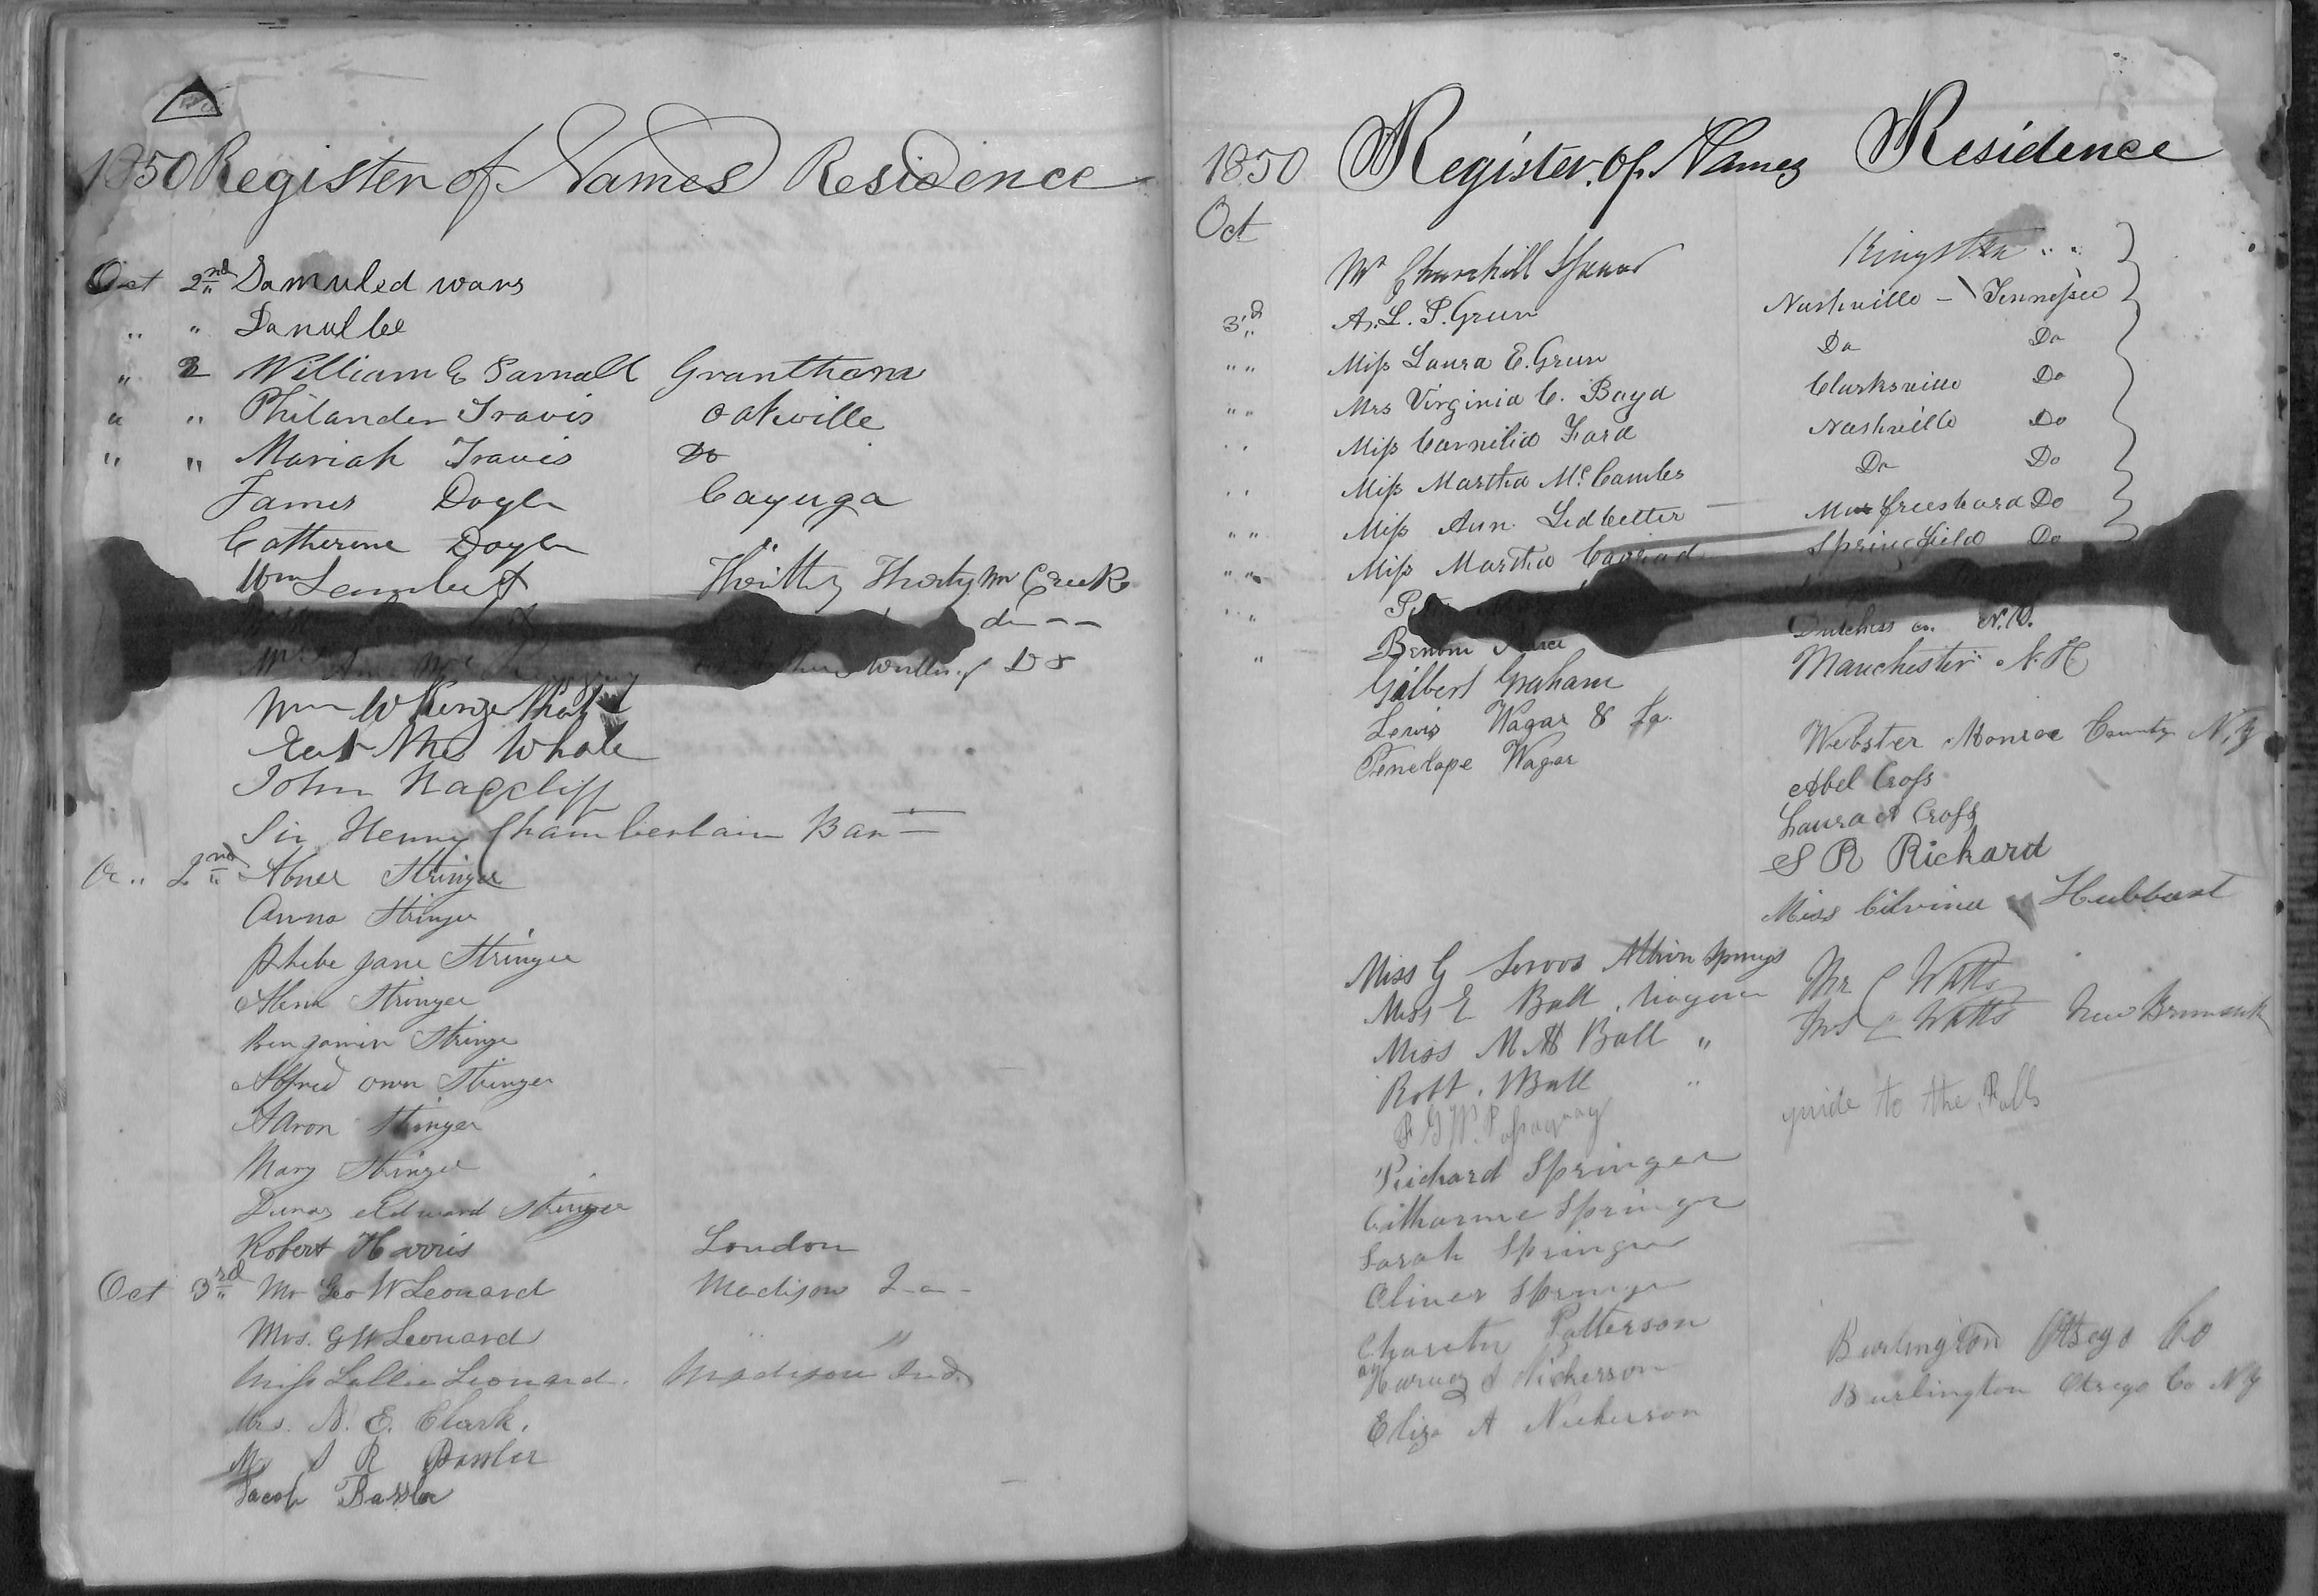 1850 Register of Names Residence
Oct 2nd Samuled wars
.. " Danul lee
" 2 William C Darnall Grantham
" " Philander Travis Oakville
" " Mariah Travis Do
James Doyle Cayuga
Catherine Doyle
Wm Lambert Thirty M Creek
do --
Mrs Do
Wm W
Eat the Whole
John Radcliff
Sir Henry Chamberlain Bar
2nd Abner Stringer
Anna Stringer
Phebe Jane Stringer
Stringer
Benjamin Stringer
Alfred Owen Stringer
Aaron Stringer
Mary Stringer
Edward Stringer
Robert Harris London
Oct 3rd Mr Geo W Leonard Madison I-a-
Mrs. G W Leonard " "
Miss Lallie Leonard. Madison Ind.
Mrs. N. E. Clark.
Mr S R Bassler
Jacob Bassler
1850 Register of Names Residence
Oct
Mr Churchill Kingston
3d A. L. P. Green Nashville - Tennessee
" " Miss Laura E. Green Do Do
" " Mrs Virginia C. Boyd Clarksville Do
" " Miss Cornelia Ford Nashville Do
" " Miss Martha McCombes Do Do
" " Miss Ann. Ledbetter Murfreesboro Do
" " Miss Martha Conrad Springfield Do
" "
" Dutchess Co. N.Y.
Gilbert Graham Manchester N.H
Lewis Wagar & La.
Penelope Wagar Webster Monroe County N.Y
Abel Cross
Laura A Cross
S R Richard
Miss Hubbard
Miss G Servos Springs
Miss E Ball, Niagara Mr C Watts
Miss M A Ball " Mrs C Watts New Brunswick
Robt. Ball "
guide to the Falls
Richard Springer
Citharine Springer
Sarah Springer
Oliver Springer
Charity Patterson
Harvey S Nickerson Burlington Otsego Co
Eliza A Nickerson Burlington Otsego Co N Y